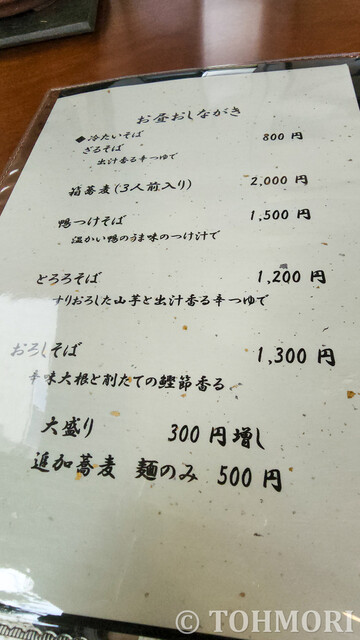 お昼おしながき
◆冷たいそば 800 円
ざるそば
出汁香る辛つゆで
箱蕎麦(3人前入り) 2,000 円
鴨つけそば 1,500 円
温かい鴨のうま味のつけ汁で
とろろそば 1,200 円
すりおろした山芋と出汁香る辛つゆで
おろしそば 1,300 円
辛味大根と削たての鰹節香る
大盛り 300 円増し
追加蕎麦 麺のみ 500 円
© TOHMORI